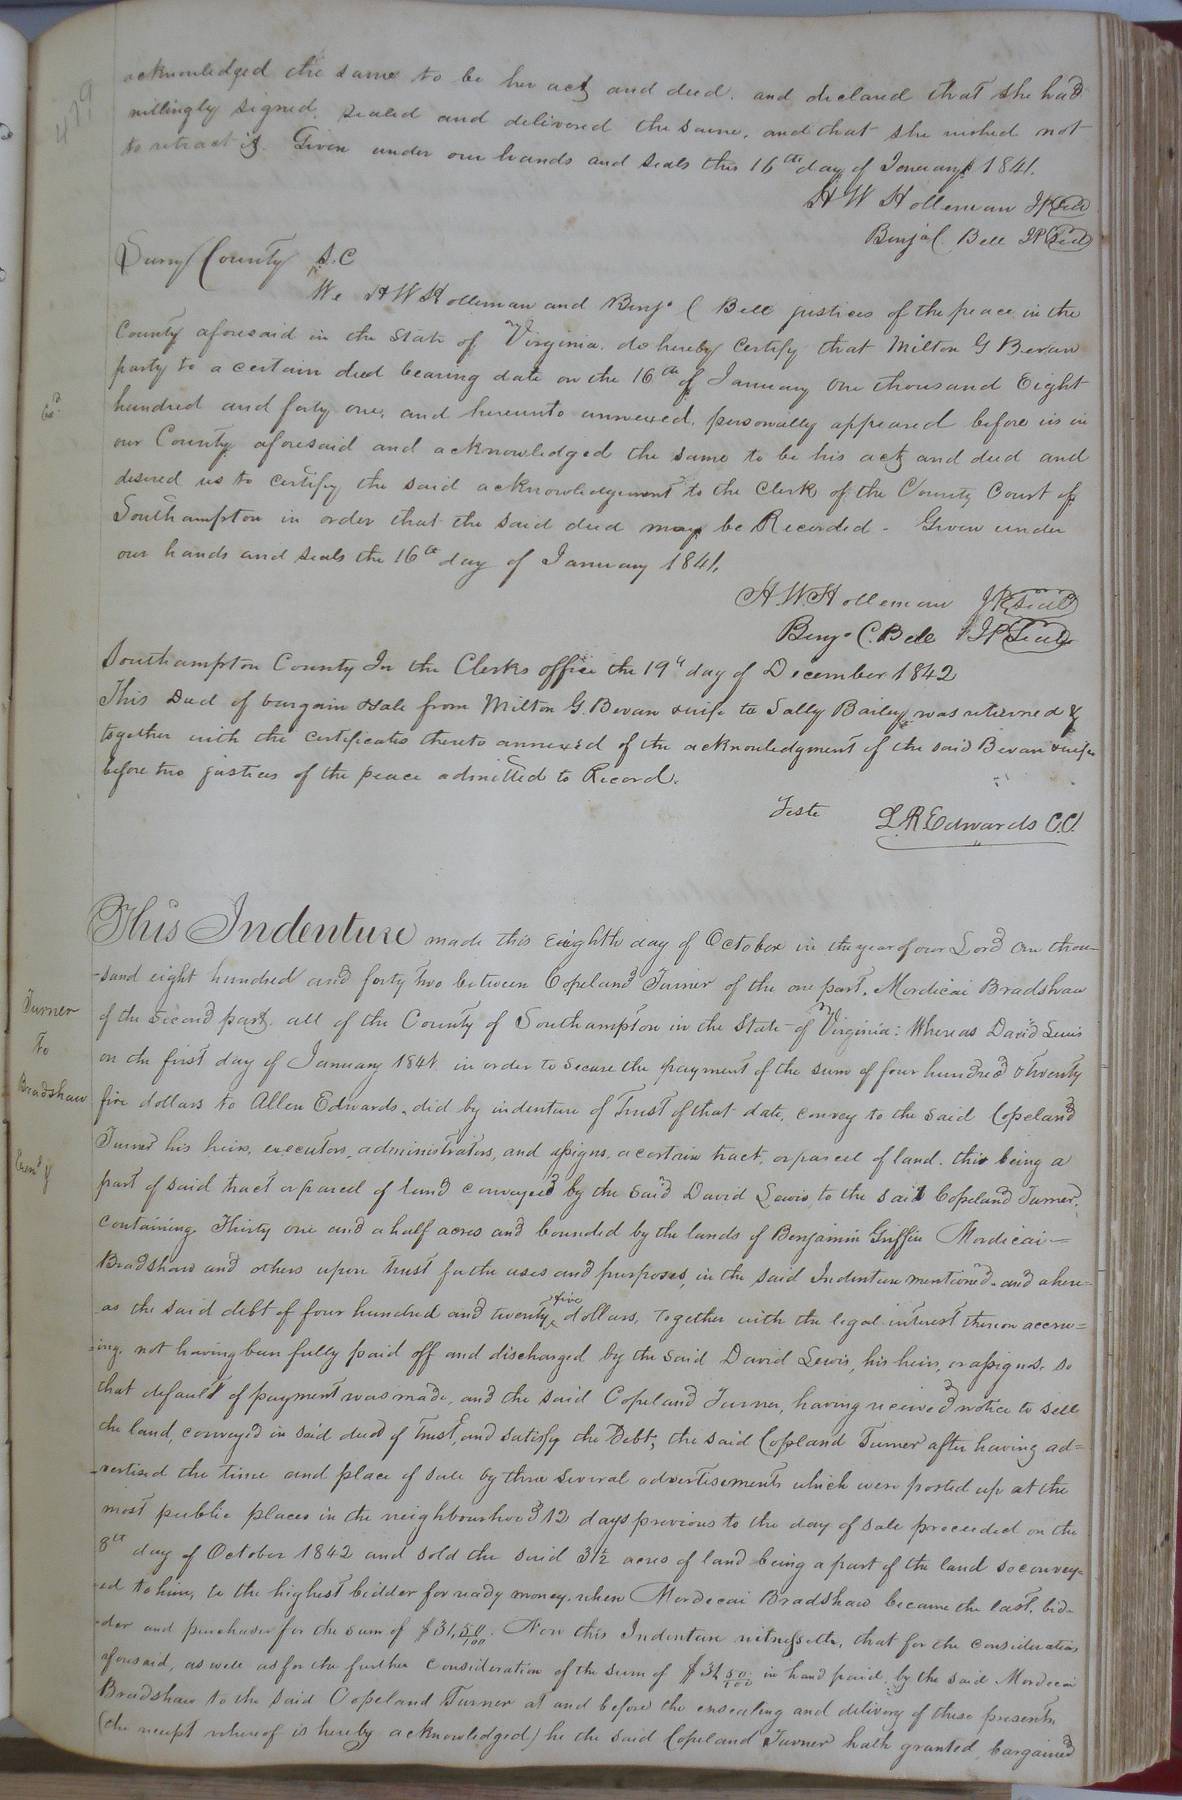 479
acknowledged the same to be her act and deed. and declared that she had
willingly signed, sealed and delivered the same, and that she wished not
to retract it. Given under our hands and seals this 16th day of January 1841.
H W Holleman JP Seal
Benja C. Bell JP Seal
Surry County S.C
We H W Holleman and Benja C Bell justices of the peace in the
County aforesaid in the State of Virginia. do hereby Certify that Milton G Bevan
party to a certain deed bearing date on the 16th of January one thousand Eight
hundred and forty one, and hereunto annexed, personally appeared before us in
our County aforesaid and acknowledged the same to be his act and deed and
desired us to certify the said acknowledgement to the Clerk of the County Court of
Southampton in order that the said deed may be Recorded - Given under
our hands and seals the 16th day of January 1841.
H. W. Holleman JP Seal
Benja C. Bell JP Seal
Southampton County In the Clerks office the 19th day of December 1842
This Deed of bargain & sale from Milton G. Bevan & wife to Sally Bailey was returned &
together with the certificates thereto annexed of the acknowledgment of the said Bevan & wife
before two justices of the peace admitted to Record.
Teste L. R. Edwards C.C.
Turner
to
Bradshaw
This Indenture made this Eighth day of October in the year of our Lord One thou-
-sand eight hundred and forty two between Copeland Turner of the one part, Mordicai Bradshaw
of the second part, all of the County of Southampton in the State of Virginia: Whereas David Lewis
on the first day of January 1841. in order to secure the payment of the sum of four hundred & twenty
five dollars to Allen Edwards, did by indenture of Trust of that date, convey to the said Copeland
Turner his heirs, executors, administrators, and assigns, a certain tract, or parcel of land. this being a
part of said tract or parcel of land conveyed by the said David Lewis, to the said Copeland Turner,
containing Thirty one and a half acres and bounded by the lands of Benjamin Griffin Mordicai=
Bradshaw and others upon trust for the uses and purposes, in the said Indenture mentioned. and where=
as the said debt of four hundred and twenty five dollars, together with the legal interest thereon accru=
-ing, not having been fully paid off and discharged by the said David Lewis, his heirs, or assigns, so
that default of payment was made, and the said Copeland Turner, having received notice to sell
the land, conveyed in said deed of Trust, and satisfy the Debt; the said Copland Turner after having ad=
-vertised the time and place of sale by three several advertisements which were posted up at the
most public places in the neighbourhood 12 days previous to the day of sale proceeded on the
8th day of October 1842 and sold the said 31½ acres of land being a part of the land so convey=
-ed to him, to the highest bidder for ready money, when Mordecai Bradshaw became the last, bid-
-der and purchaser for the sum of $31.50/100. Now this Indenture witnesseth, that for the consideration
aforesaid, as well as for the further consideration of the sum of $31.50/100 in hand paid by the said Mordecai
Bradshaw to the said Copeland Turner at and before the ensealing and delivery of these presents,
(the receipt whereof is hereby acknowledged) he the said Copeland Turner hath granted, bargained